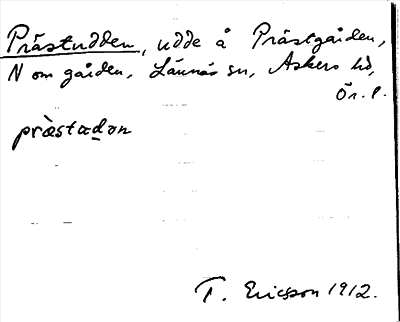 Prästudden, udde å Prästgården,
N om gården, Lännäs sn, Askers hd,
Ör. l.
præ̀stadon
T. Ericsson 1912.